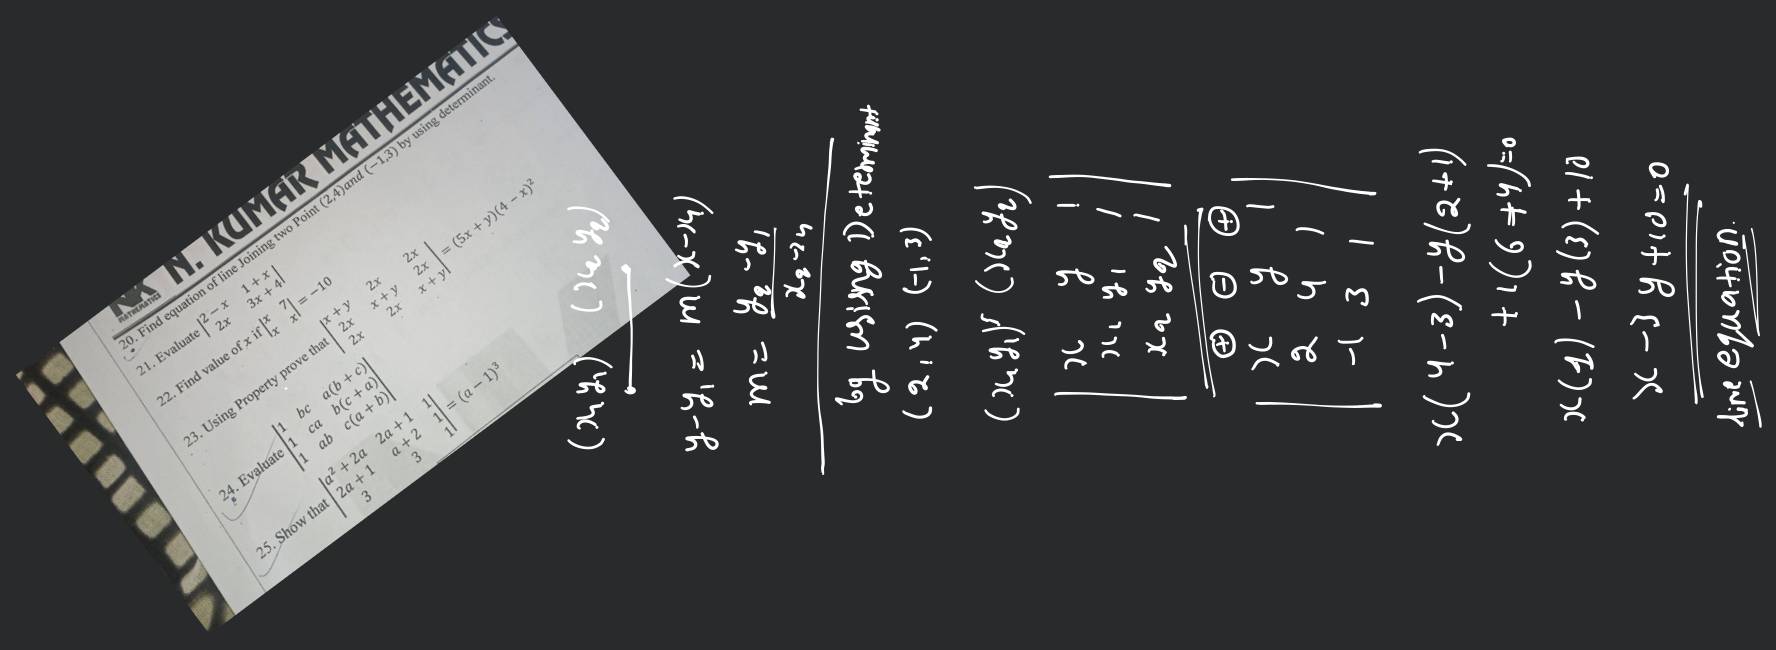 N. KUMAR MATHEMATICS
20. Find equation of line Joining two Point (2,4)and (−1,3) by using determinant.
21. Evaluate |2 − x 1 + x|
|2x 3x + 4|
22. Find value of x if |x 7|
|x x| = −10
23. Using Property prove that |x + y 2x 2x|
|2x x + y 2x| = (5x + y)(4 − x)²
|2x 2x x + y|
24. Evaluate |1 bc a(b + c)|
|1 ca b(c + a)|
|1 ab c(a + b)|
25. Show that |a² + 2a 2a + 1 1|
|2a + 1 a + 2 1| = (a − 1)³
|3 3 1|
(x₁y₁) (x₂y₂)
y-y₁ = m(x-x₁)
m = y₂-y₁
x₂-x₁
by using Determinant
(2,4) (-1,3)
(x₁y₁) (x₂y₂)
|x y 1|
|x₁ y₁ 1|
|x₂ y₂ 1|
⊕ ⊖ ⊕
|x y 1|
|2 4 1|
|-1 3 1|
x(4-3)-y(2+1)
+1(6+4)=0
x(1)-y(3)+10
x-3y+10=0
line equation.